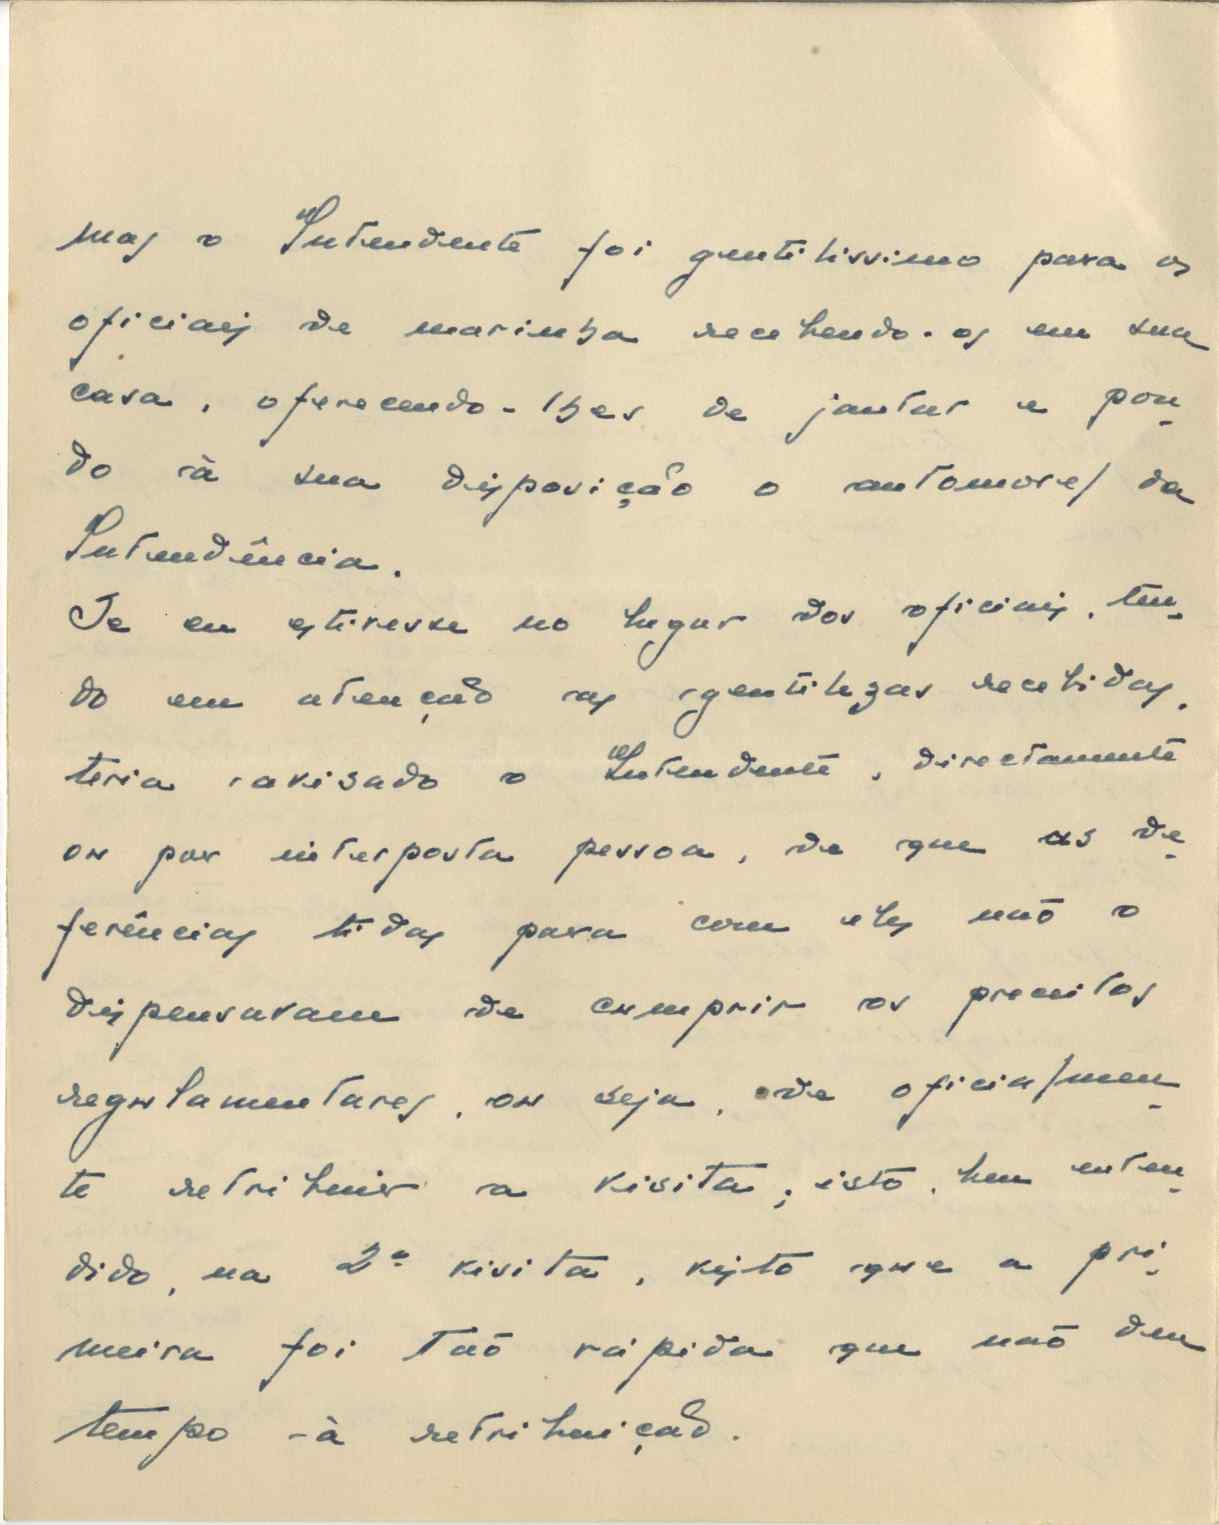 mas o Intendente foi gentilissimo para os
oficiais de marinha recebendo-os em sua
casa, oferecendo-lhes de jantar e pon-
do à sua disposição o automovel da
Intendência.
Se eu estivesse no lugar dos oficiais, ten-
do em atenção as gentilezas recebidas,
teria avisado o Intendente, directamente
ou por interposta pessoa, de que as de-
ferências tidas para com eles não o
dispensavam de cumprir os preceitos
regulamentares, ou seja, de oficialmen-
te retribuir a visita; isto, bem enten-
dido, na 2ª visita, visto que a pri-
meira foi tão rápida que não deu
tempo à retribuição.